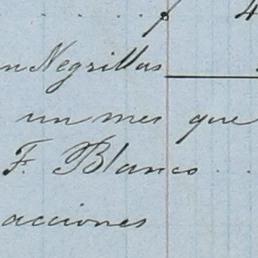 . . . . . $ 4
n Negrillas
un mes que
F. Blanco . .
acciones